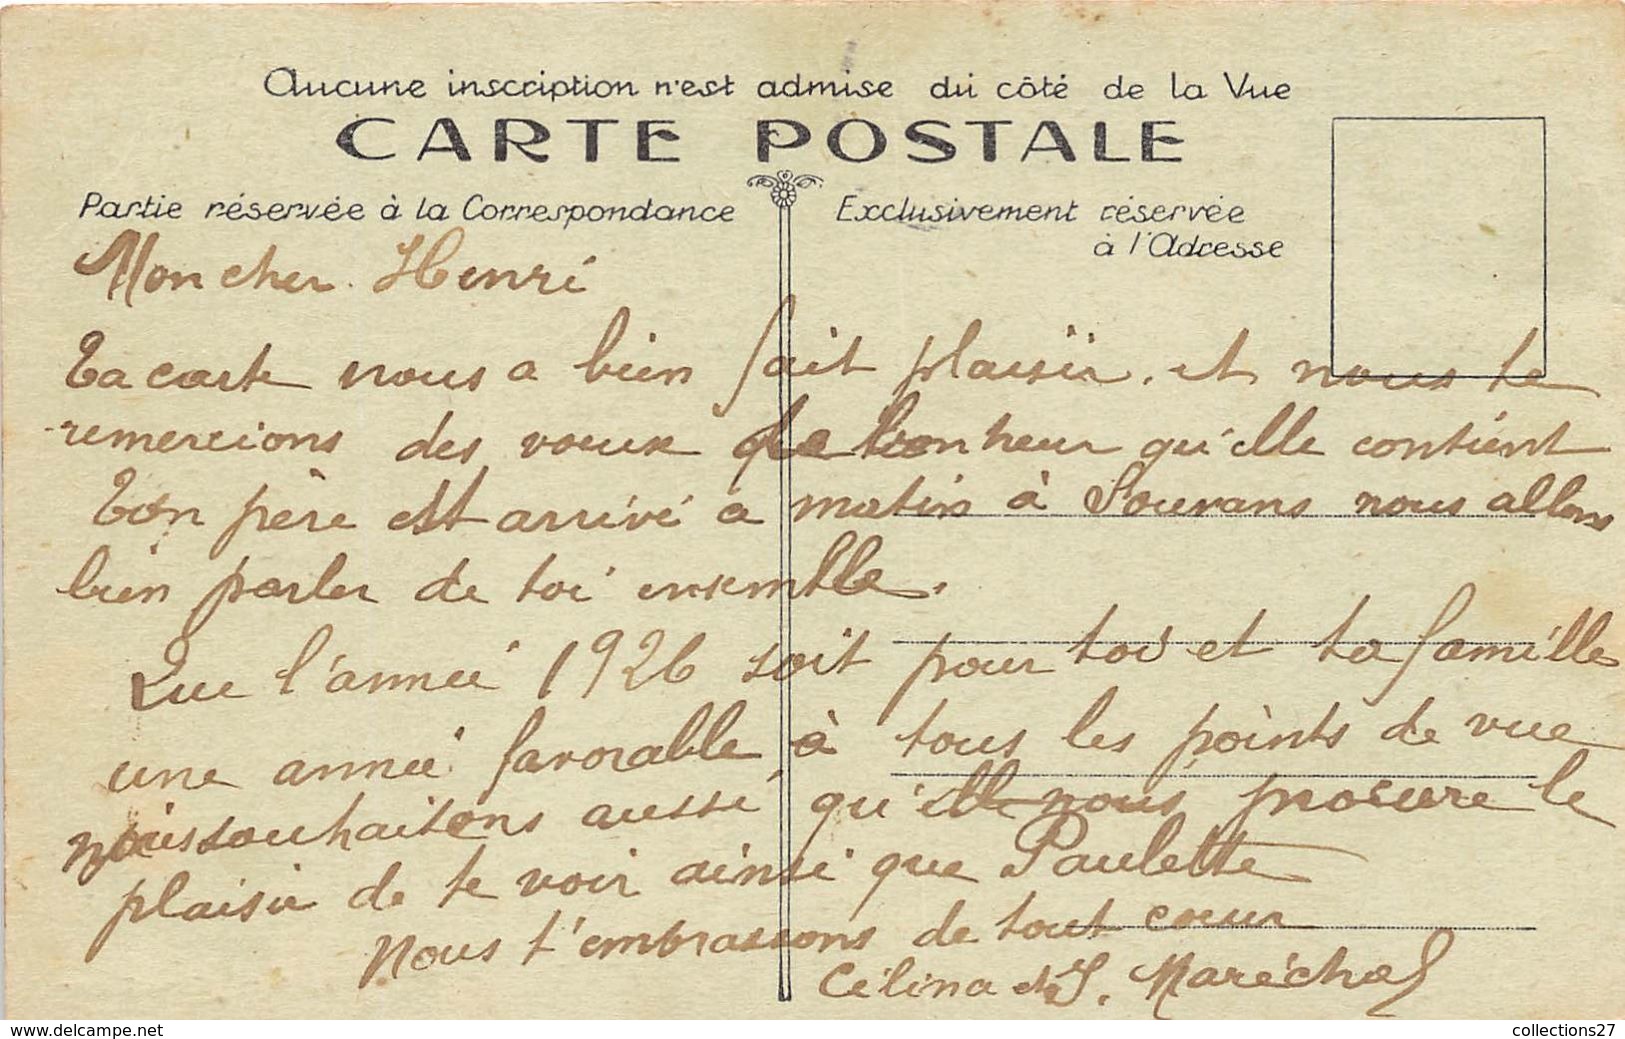 Aucune inscription n'est admise du côté de la Vue
CARTE POSTALE
Partie réservée à la Correspondance
Exclusivement réservée
à l'Adresse
Mon cher Henri
Ta carte nous a bien fait plaisir. et nous te
remercions des voeux de bonheur qu'elle contient
Ton père est arrivé a matin à Souvans nous allons
bien parler de toi ensemble.
Que l'année 1926 soit pour toi et ta famille
une année favorable à tous les points de vue
nous souhaitons aussi, qu'elle nous procure le
plaisir de te voir ainsi que Paulette
Nous t'embrassons de tout coeur
Célina et J. Maréchal
www.delcampe.net
collections27